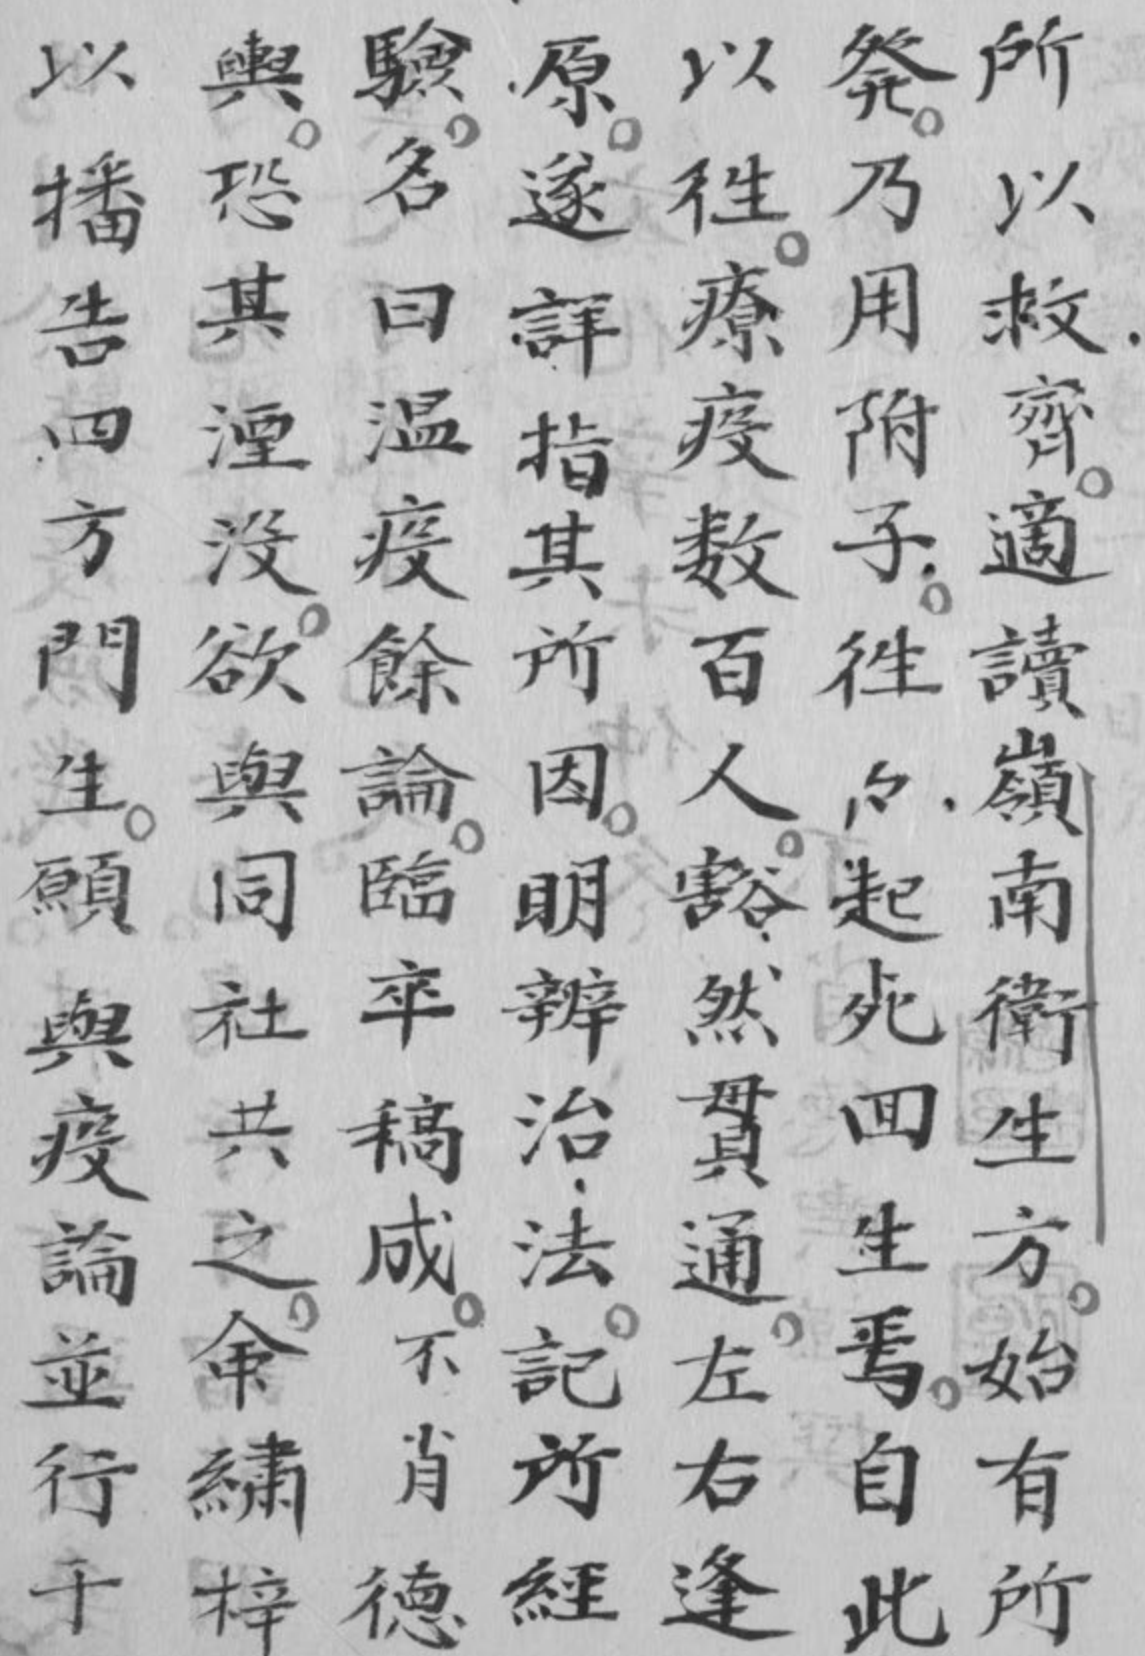 所以救齊。適讀嶺南衛生方。始有所
発。乃用附子。往々起死回生焉。自此
以往。療疫数百人。豁然貫通。左右逢
原。遂詳指其所因。明辨治法。記所經
驗。名曰温疫餘論。臨卒稿成。不肖德
輿。恐其湮没。欲與同社共之。命繡梓
以播告四方門生。願與疫論並行于